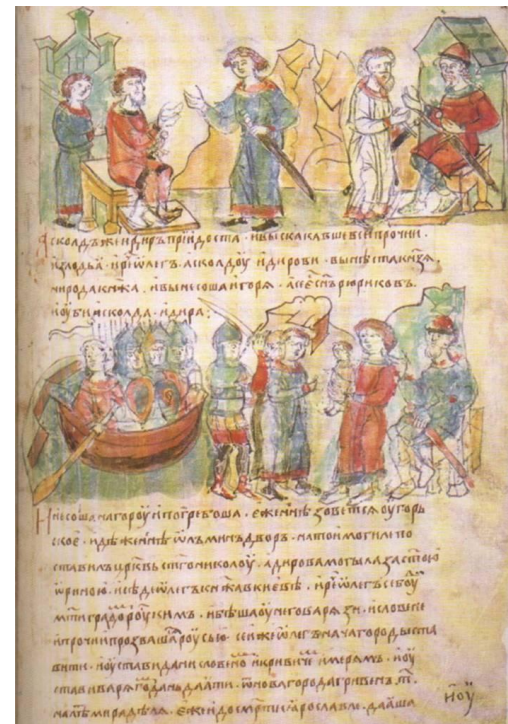 Асколдъ же и диръ прїидоста · и выскакавше вси прочии ·
из лодьа · и рече ѡлегъ асколдоу и дирови · вы нѣста кнѧзѧ ·
ни рода кнѧжа · и вынесоша игорѧ · а се есть сн҃ъ рюриковъ ·
и оубиша асколда и дира :
И несоша на гороу и погребоша · еже ннѣ зоветсѧ оугорь
ское · идѣже ннѣ ѡлъминъ дворъ · на той могилѣ по
ставилъ црк҃вь ст҃го николоу · а дирова могыла за ст҃ою
ѡриною · и сѣде ѡлегъ кнѧжа в киевѣ · и рече ѡлегъ се боуди
мт҃и градо роускимъ · и бѣша оу него варѧзи · и словене
и прочии прозвашасѧ роусью · се же ѡлегъ нача городы ста
вити · и оустави дани словено и кривичѡ и мерѧмъ · и оу
стави варѧго дань даати · ѿ новагорода гривенъ т҃ ·
на лѣ мира дѣлѧ · еже и до смрт҃и ꙗрославлѧ дааша
и оу